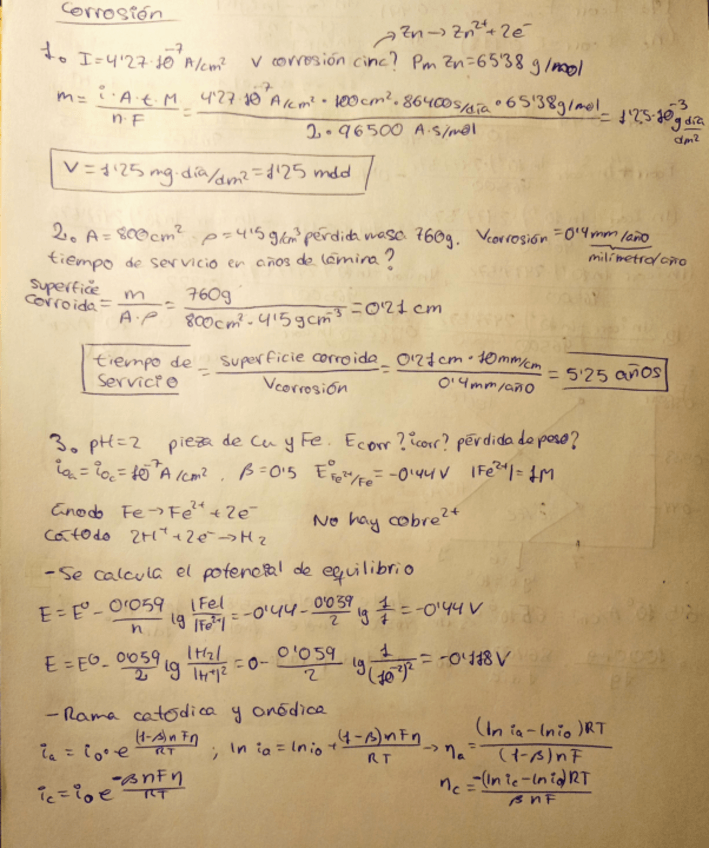 Corrosión
→ Zn → Zn²⁺ + 2e⁻
1. I = 4'27·10⁻⁷ A/cm² V corrosión cinc? Pm Zn = 65'38 g/mol
m = i·A·t·M / n·F = 4'27·10⁻⁷ A/cm² · 100cm² · 86400 s/día · 65'38 g/mol / 2·96500 A·s/mol = 1'25·10⁻³ g día/dm²
V = 1'25 mg·día/dm² = 1'25 mdd
2. A = 800cm² ρ = 4'5 g/cm³ pérdida masa 760g. Vcorrosión = 0'4 mm/año
tiempo de servicio en años de lámina? milímetro/año
superficie corroida = m / A·ρ = 760g / 800cm² · 4'5 g cm⁻³ = 0'21 cm
tiempo de servicio = superficie corroida / Vcorrosión = 0'21 cm · 10 mm/cm / 0'4 mm/año = 5'25 años
3. pH=2 pieza de Cu y Fe. Ecorr? icorr? pérdida de peso?
i₀ₐ = i₀c = 10⁻⁷ A/cm². β = 0'5 E⁰ Fe²⁺/Fe = -0'44 V |Fe²⁺| = 1M
ánodo Fe → Fe²⁺ + 2e⁻
cátodo 2H⁺ + 2e⁻ → H₂ No hay cobre²⁺
- Se calcula el potencial de equilibrio
E = E⁰ - 0'059/n lg |Fe|/|Fe²⁺| = -0'44 - 0'059/2 lg 1/1 = -0'44 V
E = E⁰ - 0'059/2 lg |H₂|/|H⁺|² = 0 - 0'059/2 lg 1/(10⁻²)² = -0'118 V
- Rama catódica y anódica
iₐ = i₀·e^((1-β)nFη/RT) ; ln iₐ = ln i₀ + (1-β)nFη/RT → ηₐ = (ln iₐ - ln i₀)RT / (1-β)nF
ic = i₀ e^(-βnFη/RT) ηc = -(ln ic - ln i₀)RT / βnF